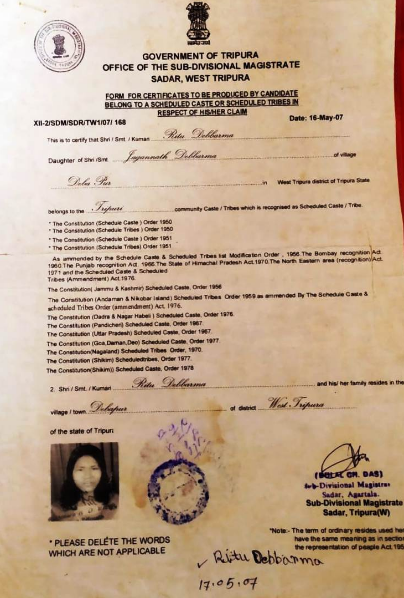 GOVERNMENT OF TRIPURA
OFFICE OF THE SUB-DIVISIONAL MAGISTRATE
SADAR, WEST TRIPURA
FORM FOR CERTIFICATES TO BE PRODUCED BY CANDIDATE
BELONG TO A SCHEDULED CASTE OR SCHEDULED TRIBES IN
RESPECT OF HIS/HER CLAIM
XII-2/SDM/SDR/TW1/07/ 168 Date: 16-May-07
This is to certify that Shri / Smt. / Kumari Ritu Debbarma
Daughter of Shri /Smt. Jagannath Debbarma of village
Deba Pur in West Tripura district of Tripura State
belongs to the Tripuri community Caste / Tribes which is recognised as Scheduled Caste / Tribe.
* The Constitution (Schedule Caste ) Order 1950
* The Constitution (Schedule Tribes ) Order 1950
* The Constitution (Schedule Caste ) Order 1951
* The Constitution (Schedule Tribes ) Order 1951
As ammended by the Schedule Caste & Schedule Tribes list Modification Order , 1956.The Bombay recognition Act.
1960.The Punjab recognition Act. 1966.The State of Himachal Pradesh Act.1970,The North Eastern area (recognition)Act.
1971 and the Scheduled Caste & Scheduled
Tribes (Ammendment) Act.1976.
The Constitution( Jammu & Kashmir) Scheduled Caste, Order 1956
The Constitution (Andaman & Nikobar Island) Scheduled Tribes Order 1959 as ammended By The Schedule Caste &
scheduled Tribes Order (ammendment) Act. 1976.
The Constitution (Dadra & Nagar Habeli ) Scheduled Caste, Order 1976.
The Constitution (Pandicheri) Scheduled Caste, Order 1967.
The Constitution (Uttar Pradesh) Scheduled Caste, Order 1967.
The Constitution (Goa,Daman,Deo) Scheduled Caste, Order 1977.
The Constitution(Nagaland) Scheduled Tribes Order, 1970.
The Constitution (Shikim) Scheduledtribes, Order 1977.
The Constitution(Shikim)) Scheduled Caste, Order 1978
2. Shri / Smt. / Kumari Ritu Debbarma and his/ her family resides in the
village / town Debapur of district West Tripura
of the state of Tripura
(DULAL CH. DAS)
Sub-Divisional Magistrate
Sadar, Agartala.
Sub-Divisional Magistrate
Sadar, Tripura(W)
* PLEASE DELETE THE WORDS
WHICH ARE NOT APPLICABLE
*Note:- The term of ordinary resides used here
have the same meaning as in section
the representation of people Act,195
Ritu Debbarma
17.05.07